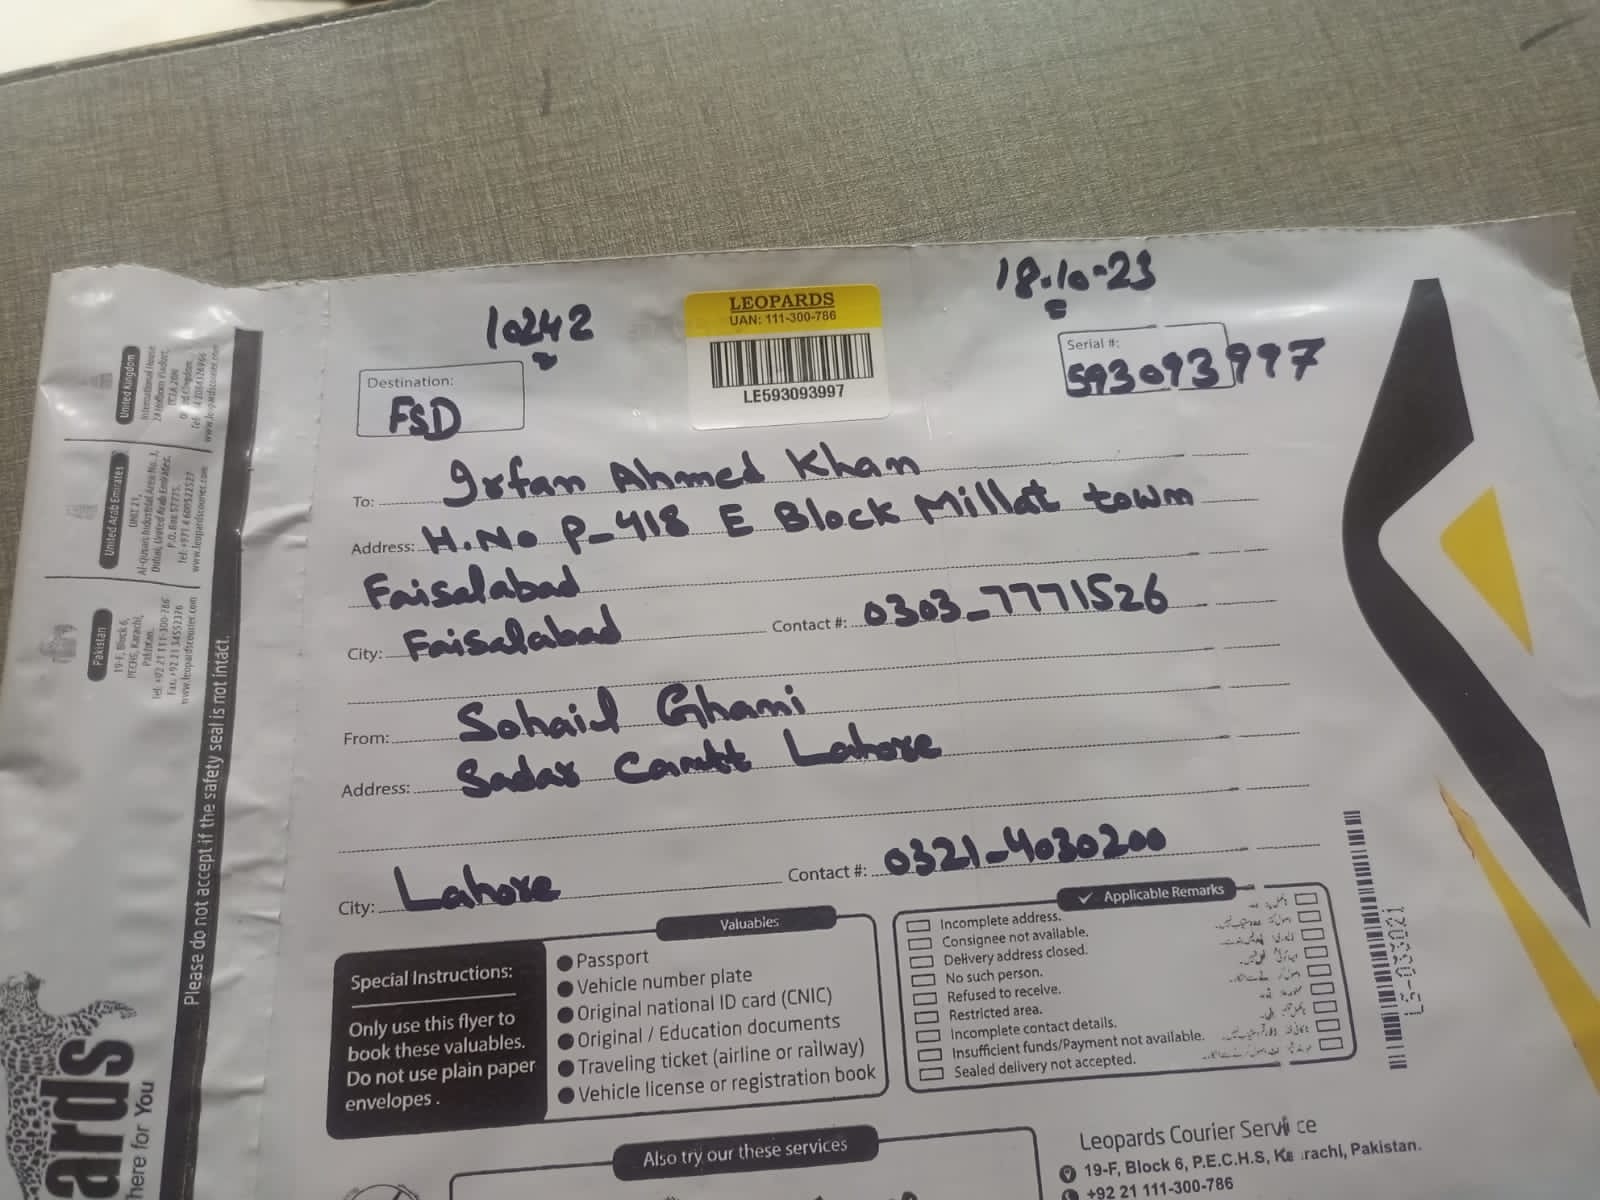 10242
18-10-23
LEOPARDS
UAN: 111-300-786
LE593093997
Destination:
FSD
Serial #:
593093997
To: Irfan Ahmed Khan
Address: H.No P-418 E Block Millat town
Faisalabad
City: Faisalabad Contact #: 0303-7771526
From: Sohail Ghani
Address: Sadar Cantt Lahore
City: Lahore Contact #: 0321-4030200
Special Instructions:
Only use this flyer to
book these valuables.
Do not use plain paper
envelopes.
Valuables
Passport
Vehicle number plate
Original national ID card (CNIC)
Original / Education documents
Traveling ticket (airline or railway)
Vehicle license or registration book
✓ Applicable Remarks
Incomplete address.
Consignee not available.
Delivery address closed.
No such person.
Refused to receive.
Restricted area.
Incomplete contact details.
Insufficient funds/Payment not available.
Sealed delivery not accepted.
LS-033021
Also try our these services
Leopards Courier Service
19-F, Block 6, P.E.C.H.S, Karachi, Pakistan.
+92 21 111-300-786
Please do not accept if the safety seal is not intact.
United Kingdom
International House
www.leopardscourier.com
United Arab Emirates
UNIT 21,
Al-Qusais Industrial Area No. 1,
Dubai, United Arab Emirates.
P.O. Box 57775.
www.leopardscourier.com
Pakistan
19-F, Block 6,
PECHS, Karachi,
Pakistan.
Tel: +92 21 111-300-786
Fax: +92 21 34552376
www.leopardscourier.com
ards
here for You